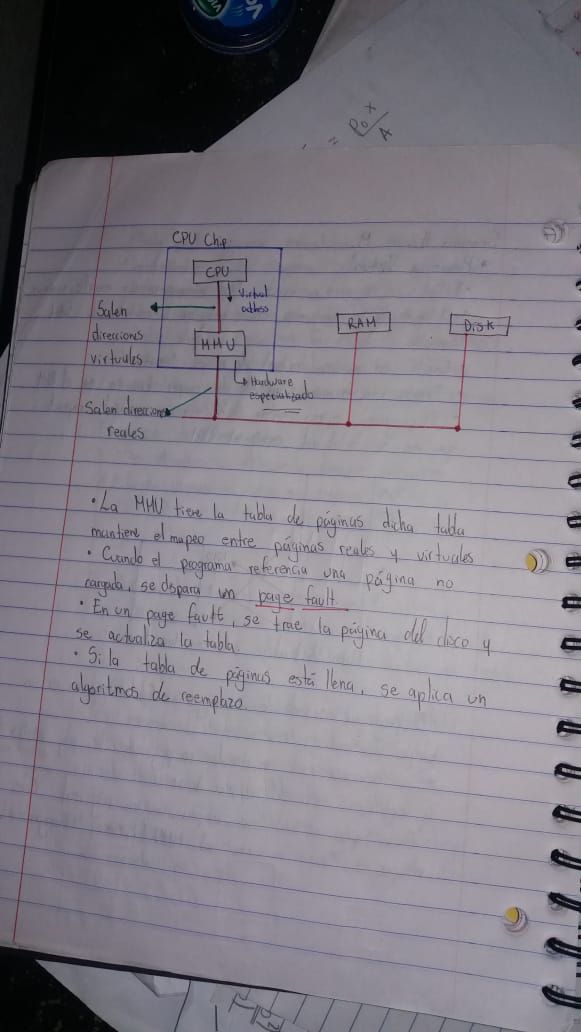 P0 X
= A
CPU Chip
CPU
Virtual
address
Salen
direcciones
virtuales
MMU
RAM
Disk
Hardware
especializado
Salen direcciones
reales
• La MMU tiene la tabla de páginas dicha tabla
mantiene el mapeo entre páginas reales y virtuales
• Cuando el programa referencia una página no
cargada, se dispara un page fault.
• En un page fault, se trae la página del disco y
se actualiza la tabla.
• Si la tabla de páginas está llena, se aplica un
algoritmos de reemplazo